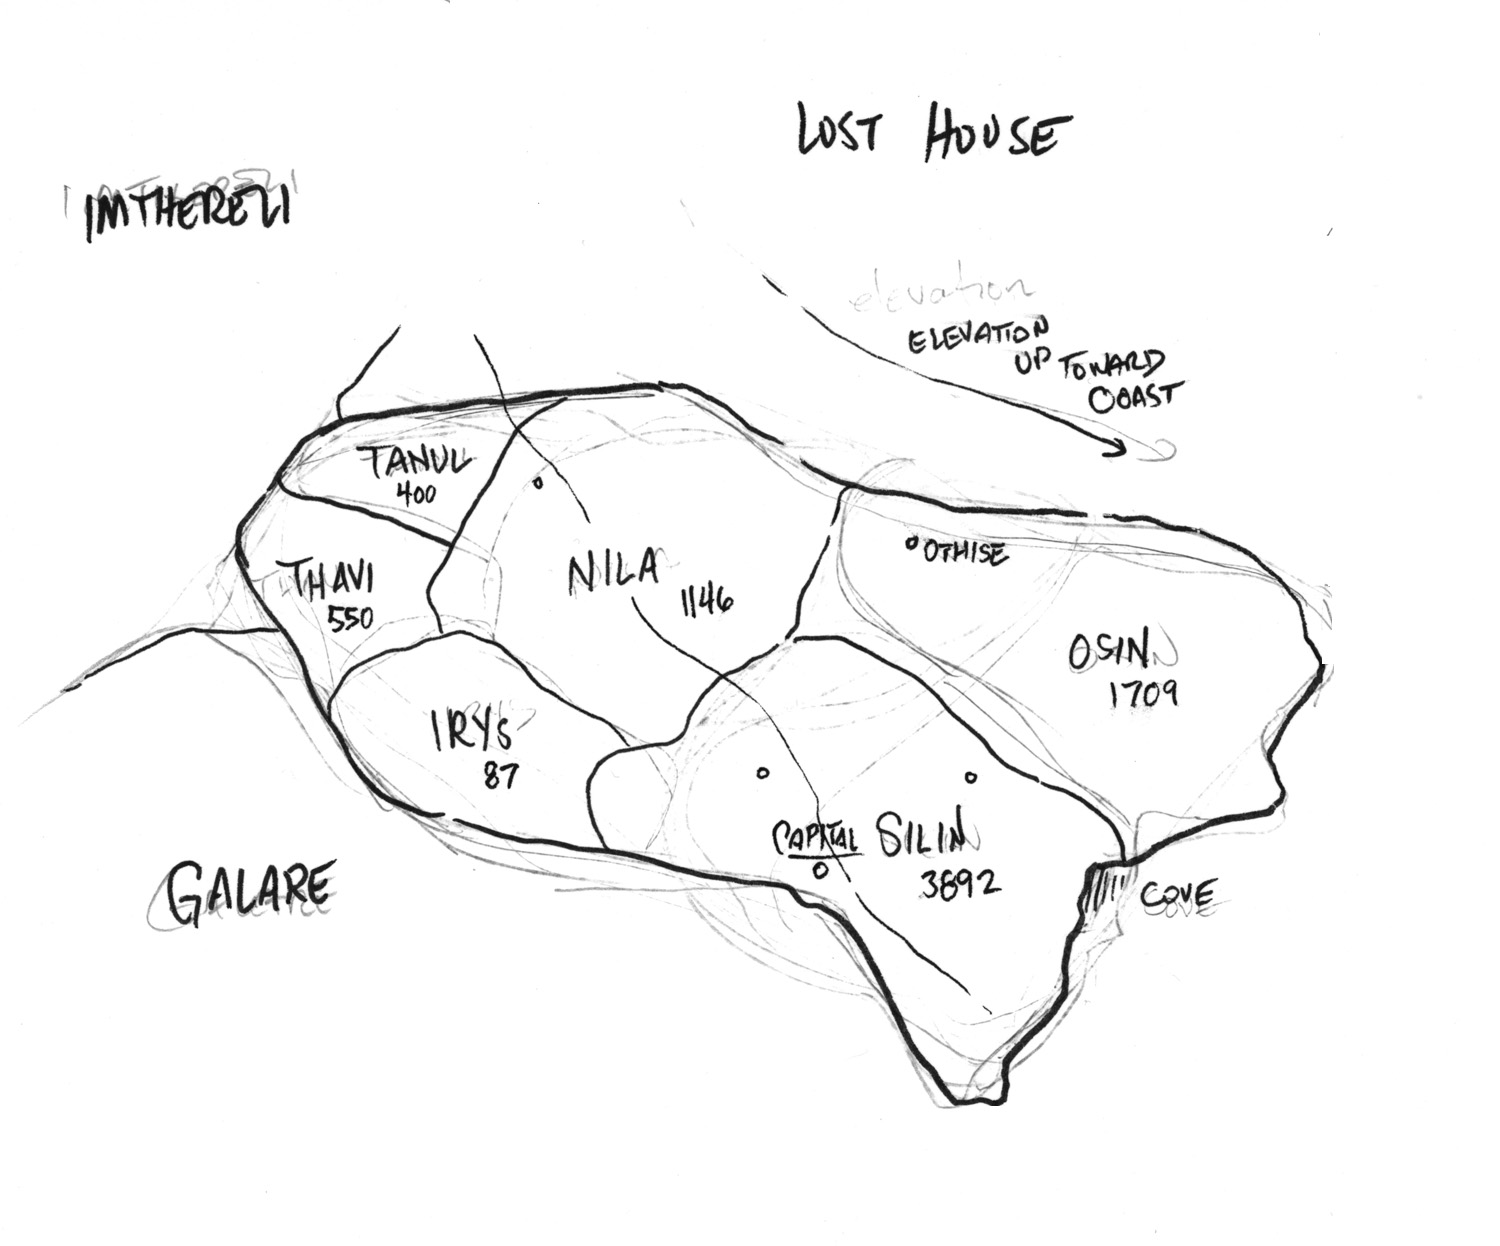 LOST HOUSE
IMTHEREZI
elevation
ELEVATION
UP TOWARD
COAST
TANUL
400
OTHISE
THAVI
550
NILA
1146
OSIN
1709
IRYS
87
CAPITAL
SILIN
3892
GALARE
COVE